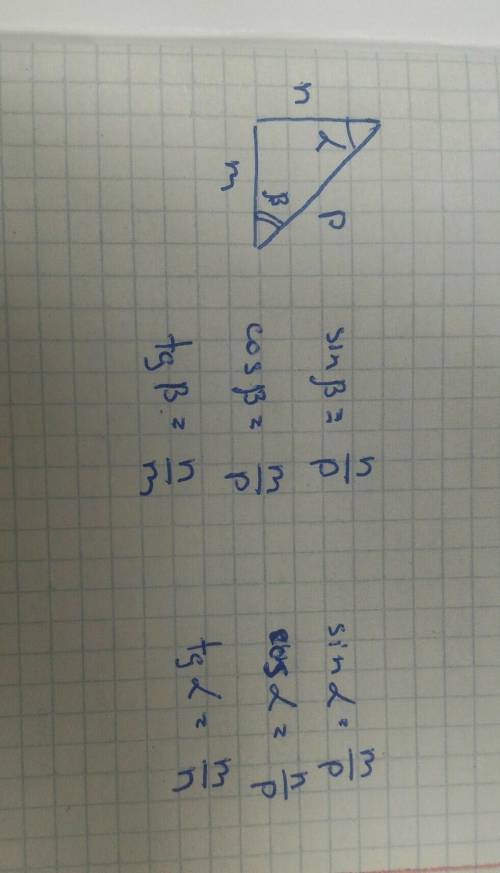 n
α
p
m
β
sin β = n/p
cos β = m/p
tg β = n/m
sin α = m/p
cos α = n/p
tg α = m/n